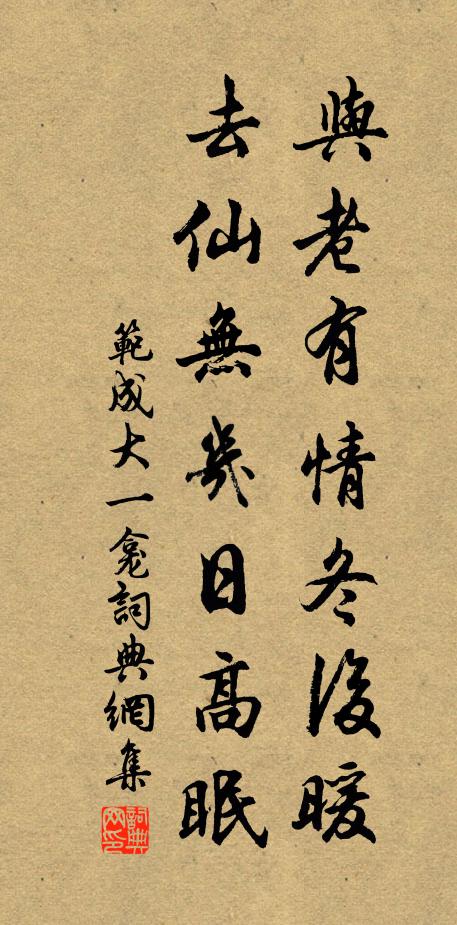 與老有情冬後暖
去仙無幾日高眠
範成大一龛詞典網集
詞典网印